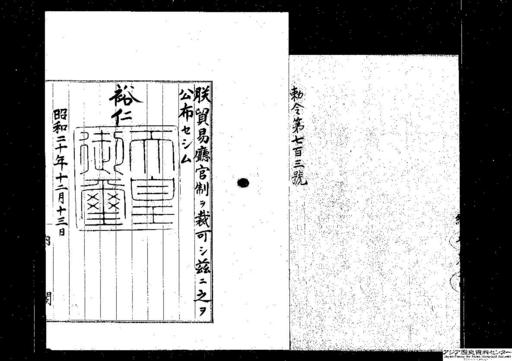 勅令第七百三號
朕貿易廳官制ヲ裁可シ茲ニ之ヲ
公布セシム
裕仁
天皇
御璽
昭和二十年十二月十三日
内閣
アジア歴史資料センター